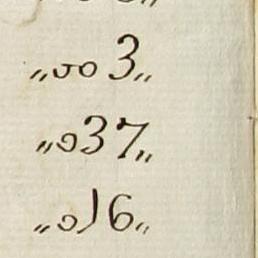 „003„
„037„
„016„